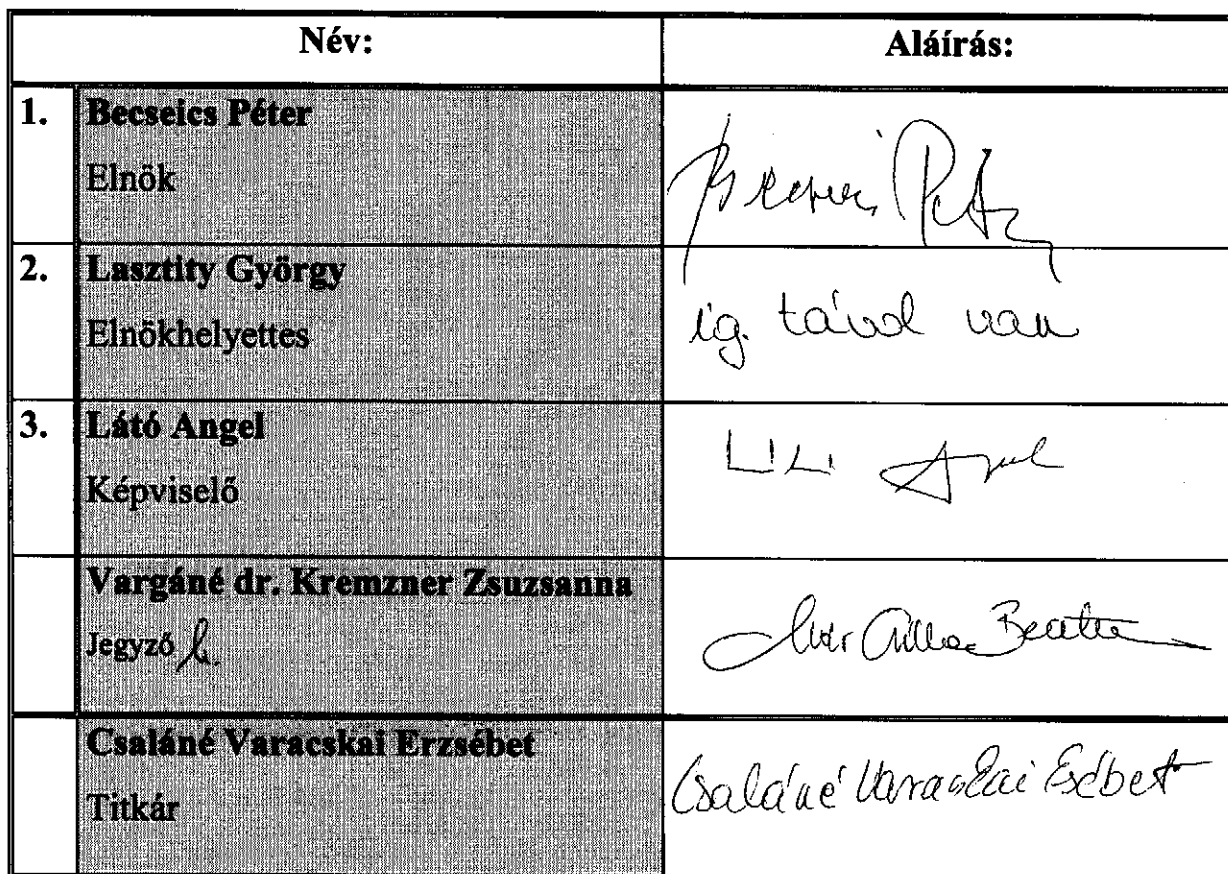 Név: Aláírás:
1. Becseics Péter
Elnök
Becseics Péter
2. Lasztity György
Elnökhelyettes
ig. távol van
3. Látó Angel
Képviselő
Angel
Vargáné dr. Kremzner Zsuzsanna
Jegyző h.
Csaláné Varacskai Erzsébet
Titkár
Csaláné Varacskai Erzsébet